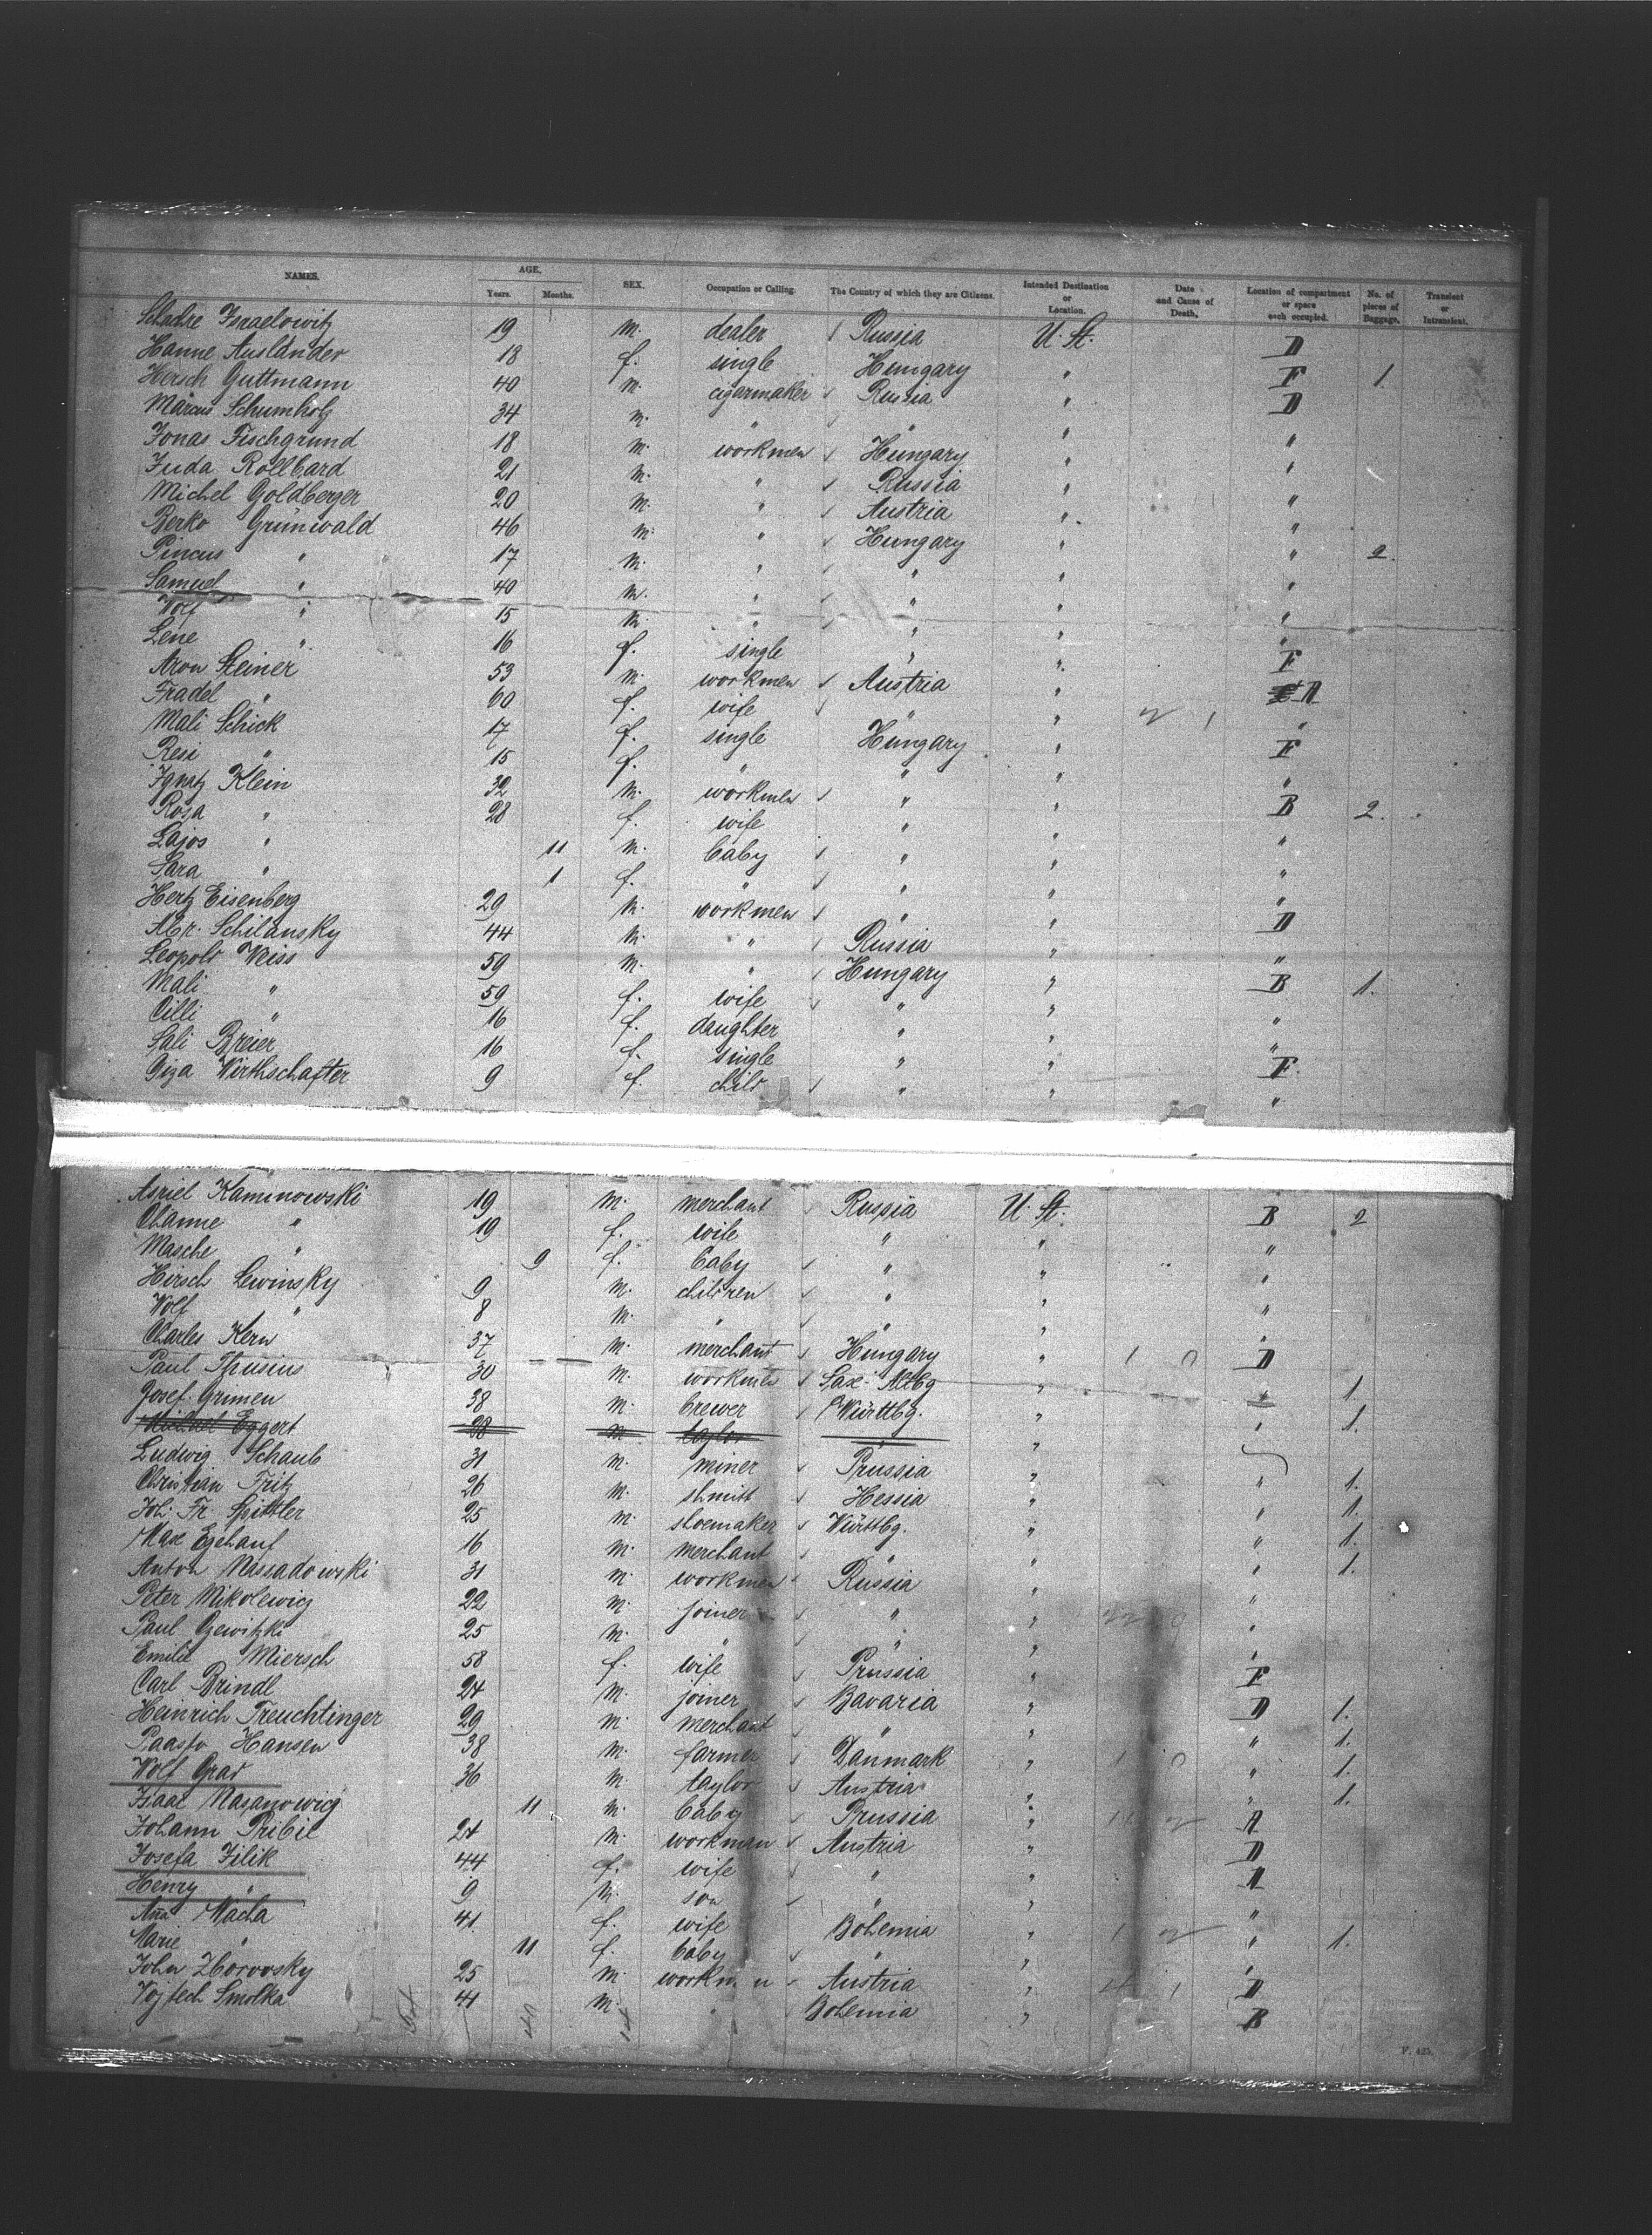 NAMES. AGE. Years. Months. SEX. Occupation or Calling. The Country of which they are Citizens. Intended Destination or Location. Date and Cause of Death. Location of compartment or space each occupied. No. of pieces of Baggage. Transient or Intransient.
Schadre Israelowitz 19 m. dealer Russia U. St. D
Hanne Ausländer 18 f. single Hungary " F 1.
Hersch Guttmann 40 m. cigarmaker Russia " D
Marcus Schumholz 34 m. " " " "
Jonas Fischgrund 18 m. workmen Hungary " "
Juda Rollbard 21 m. " Russia " "
Michel Goldberger 20 m. " Austria " "
Berko Grünwald 46 m. " Hungary " " 2.
Pincus " 17 m. " " " "
Samuel " 40 m. " " " "
Wolf " 15 m. " " " "
Lene " 16 f. single " " F
Aron Steiner 53 m. workmen Austria " D
Fradel " 60 f. wife " " "
Mali Schick 17 f. single Hungary " F
Resi " 15 f. " " " "
Ignatz Klein 32 m. workmen " " B 2.
Rosa " 28 f. wife " " "
Lajos " 11 m. baby " " "
Sara " 1 f. " " " "
Hertz Eisenberg 29 m. workmen " " D
Abr. Schilansky 44 m. " Russia " "
Leopold Weiss 59 m. " Hungary " B 1.
Mali " 59 f. wife " " "
Cilli " 16 f. daughter " " "
Sali Breier 16 f. single " " F.
Giza Wirthschafter 9 f. child " " "
Asriel Kaminowski 19 m. merchant Russia U. St. B 2
Channe " 19 f. wife " " "
Masche " 9 f. baby " " "
Hirsch Lewinsky 9 m. children " " "
Wolf " 8 m. " " " "
Charles Kern 37 m. merchant Hungary " D
Paul Thusius 30 m. workmen Sax-Altbg " " 1.
Josef Grumen 38 m. brewer Württbg. " " 1.
Michael Eggert 28 m. taylor "
Ludwig Schaub 31 m. miner Prussia " " 1.
Christian Fritz 26 m. shmitt Hessia " " 1.
Joh. Fr. Spittler 25 m. shoemaker Württbg. " " 1.
Max Egehauf 16 m. merchant " " " 1.
Anton Massadowski 31 m. workmen Russia " "
Peter Mikolewicz 22 m. joiner " " "
Paul 25 m. " " " "
Emilie Miersch 58 f. wife Prussia " F
Carl Brindl 24 m. joiner Bavaria " D 1.
Heinrich Treuchtlinger 29 m. merchant " " " 1.
Paasto Hansen 38 m. farmer Danmark " " 1.
Wolf Grad 36 m. taylor Austria " " 1.
Isaac Nasanowicz 11 m. baby Prussia " A
Johann Pribil 24 m. workman Austria " D
Josefa Jilik 44 f. wife " " A
Henry " 9 m. son " " "
Ana Macha 41 f. wife Bohemia " " 1.
Marie " 11 f. baby " " "
John Zborovsky 25 m. workmen Austria " D
Vojtech Smolka 41 m. " Bohemia " B